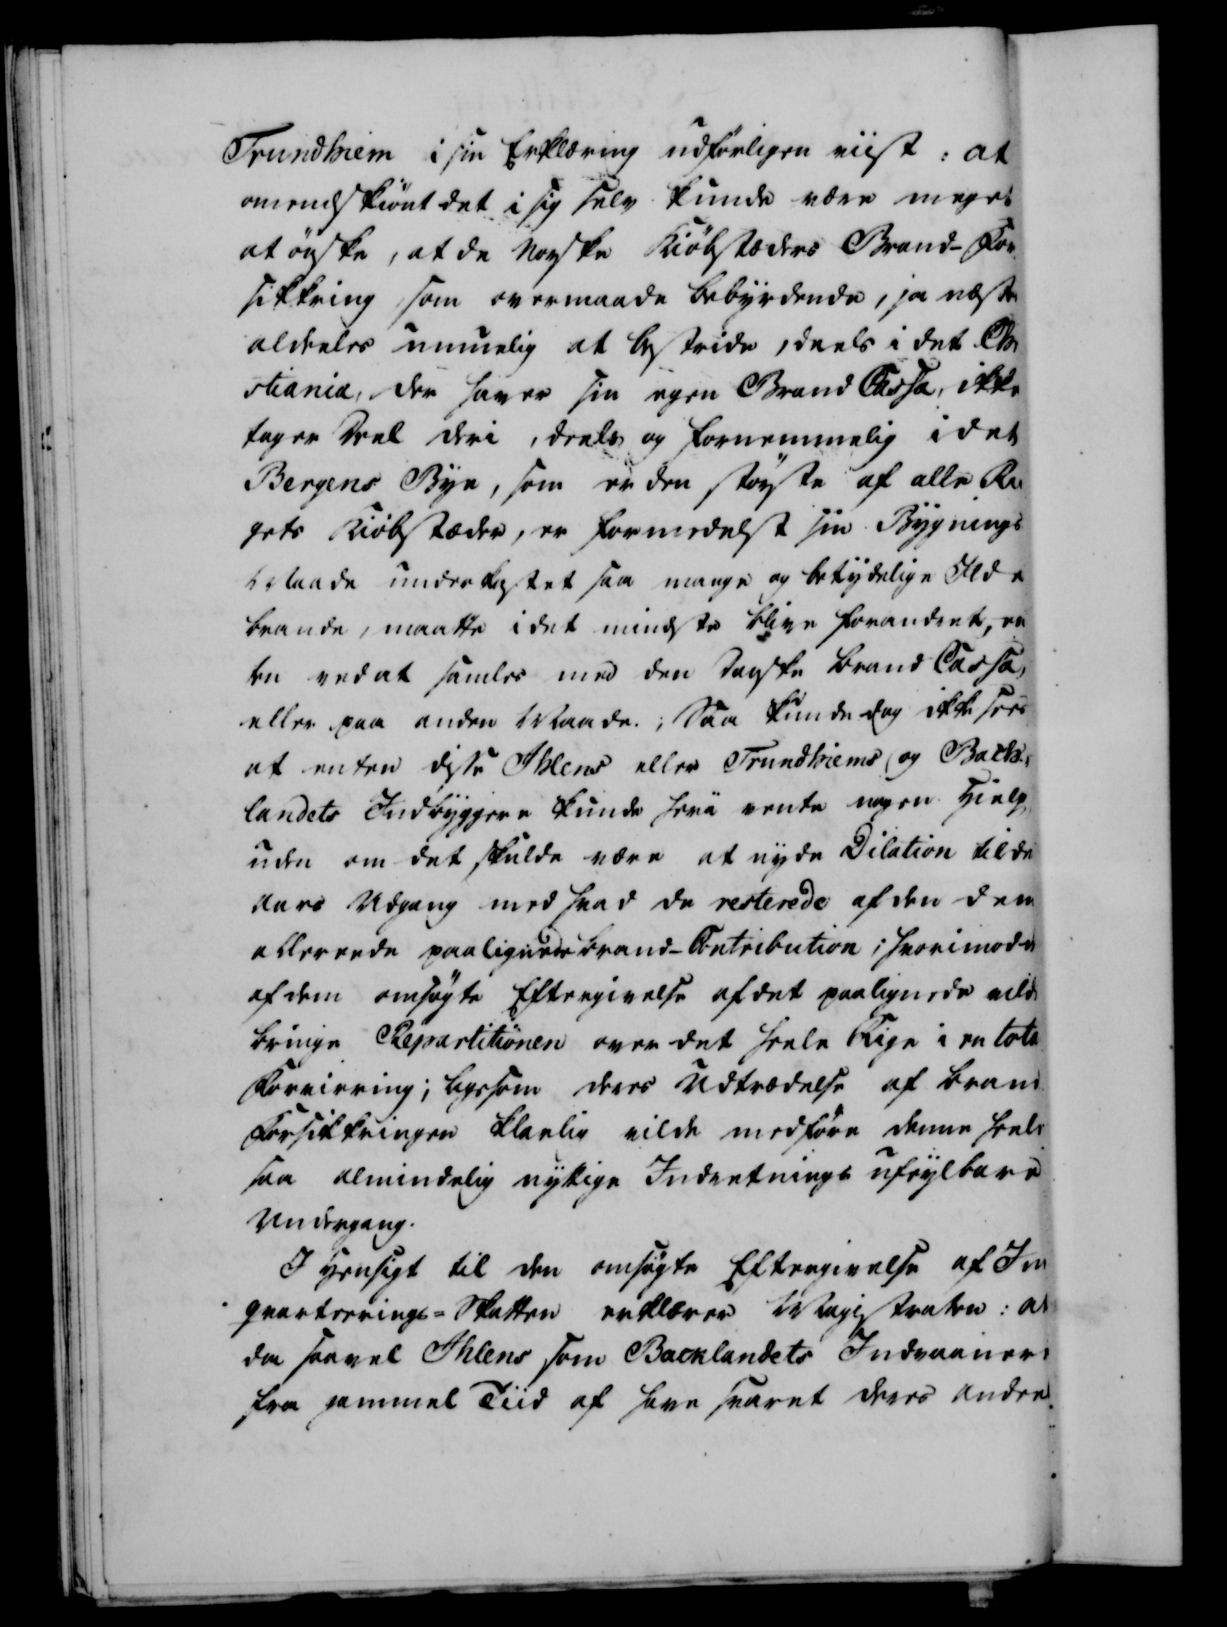 Trundhiem i sin Erklæring udførligen viist: at
omendskiønt det i sig selv kunde være meget
at ønske, at de Norske Kiøbstæders Brand-For
sikkring som overmaade bebyrdende, ja næsten
aldeeles umuelig at bestride, deels i det Chri
stiania, der haver sin egen Brand Cassa, ikke
tager Deel deri, deels og fornemmelig i det
Bergens Bye, som er den største af alle Ri
gets Kiøbstæder, er formedelst sin Bygnings
Maade underkastet saa mange og betydelige Ilde
brande, maatte i det mindste blive forandret, en
ten ved at samles med den Danske Brand Cassa,
eller paa anden Maade.; Saa kunde dog ikke sees
at enten disse Ihlens eller Trundhiems og Back-
landets Indbyggere kunde herved vente nogen Hielp,
uden om det skulde være at nyde Dilation til de
Aars Udgang med hvad de resterede af den dem
allerede paalignede Brand-Contribution; hvorimod en
af dem omsøgte Eftergivelse af det paalignede vilde
bringe Repartitionen over det heele Rige i en total
Forvirring; ligesom deres Udtrædelse af Brand
Forsikkringen klarlig vilde medføre denne heele
saa almindelig nyttige Indretnings ufeylbare
Undergang.
I Hensigt til den omsøgte Eftergivelse af In
qvarterings-Skatten erklærer Magistraten: at
da saavel Ihlens som Backlandets Indvaanere
fra gammel Tiid af have svaret deres Andeel